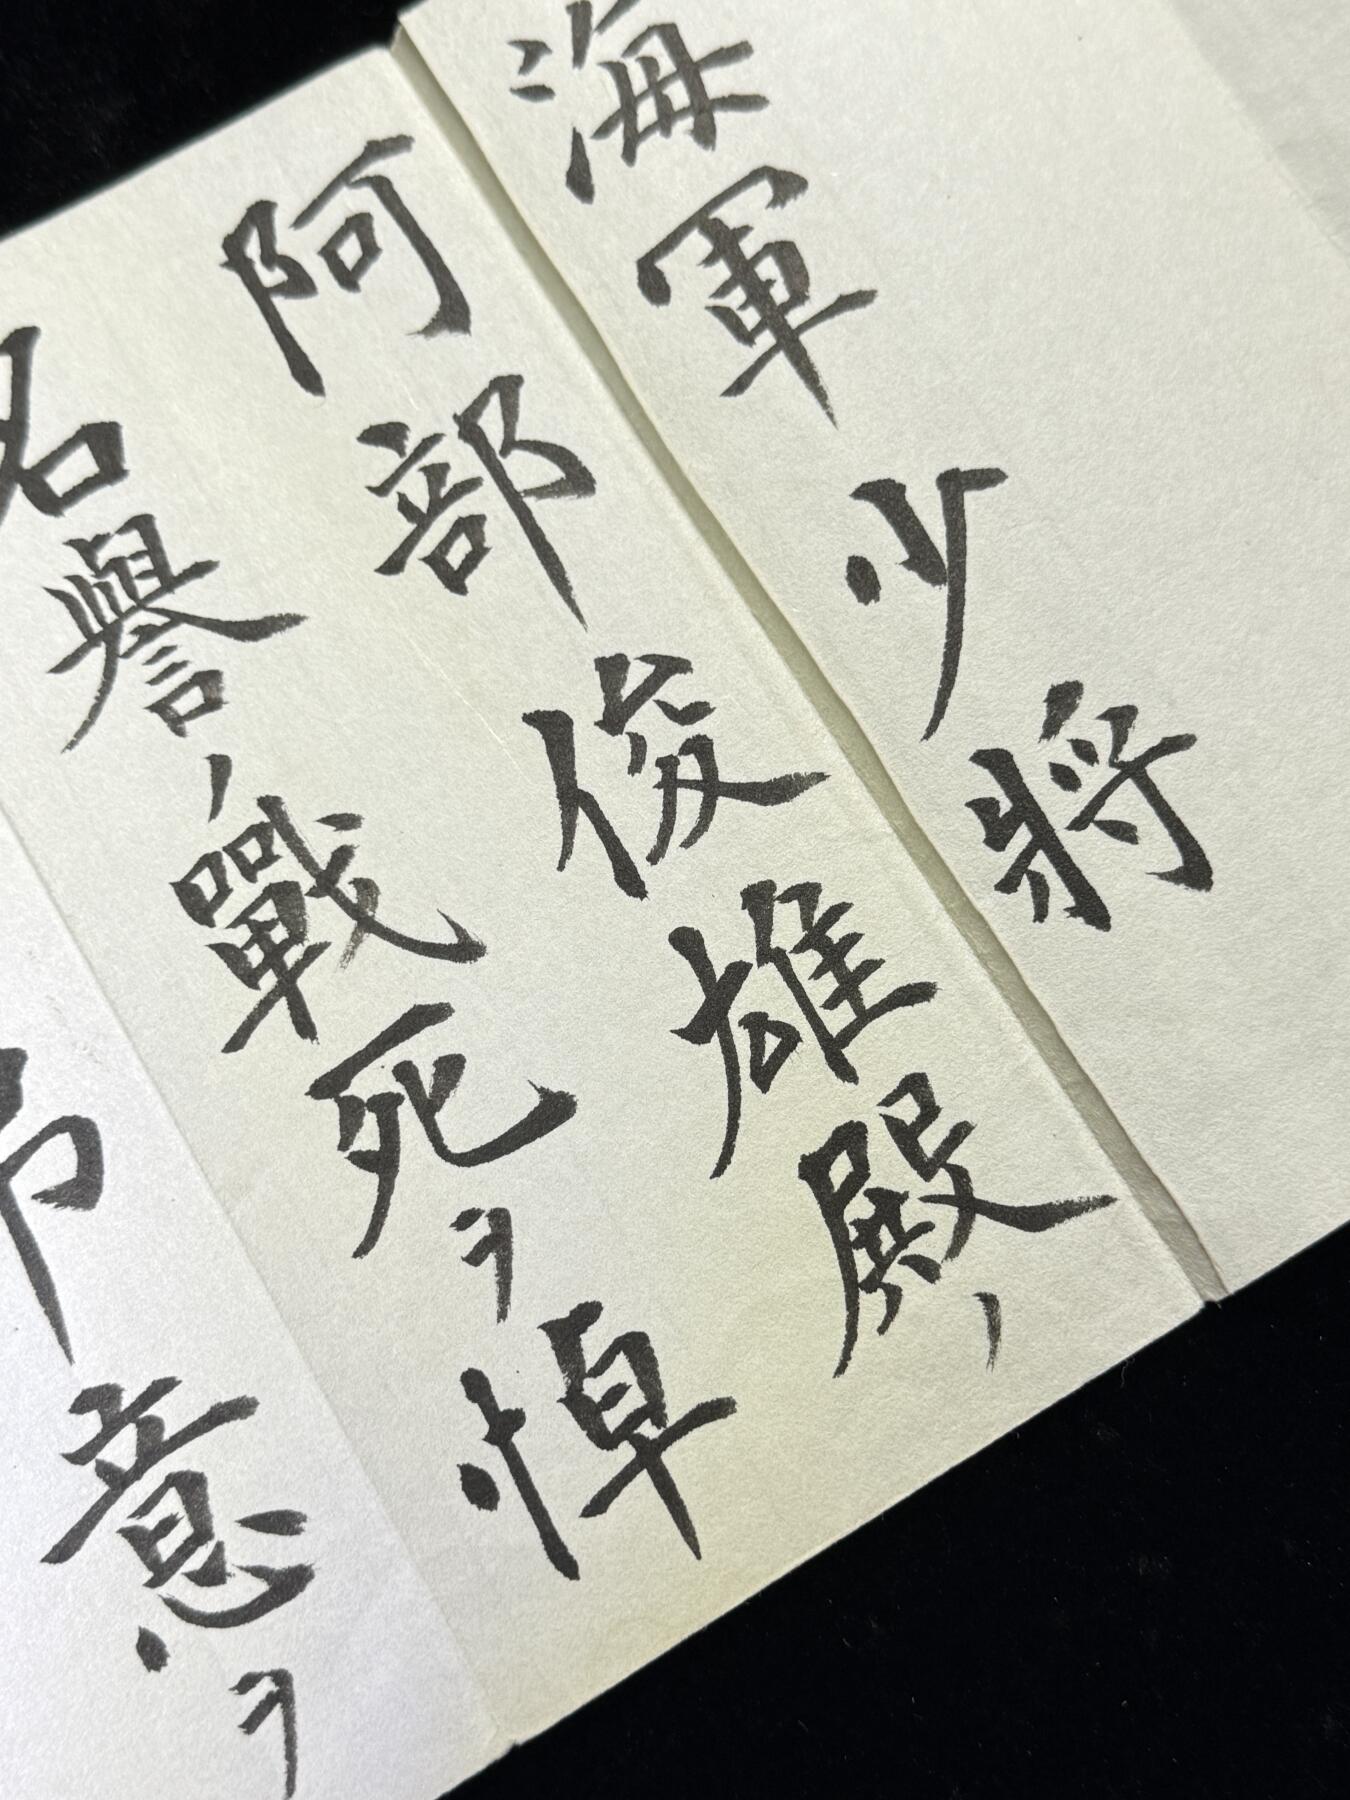 海軍少將
阿部俊雄殿ノ
名譽ノ戰死ヲ悼
弔意ヲ